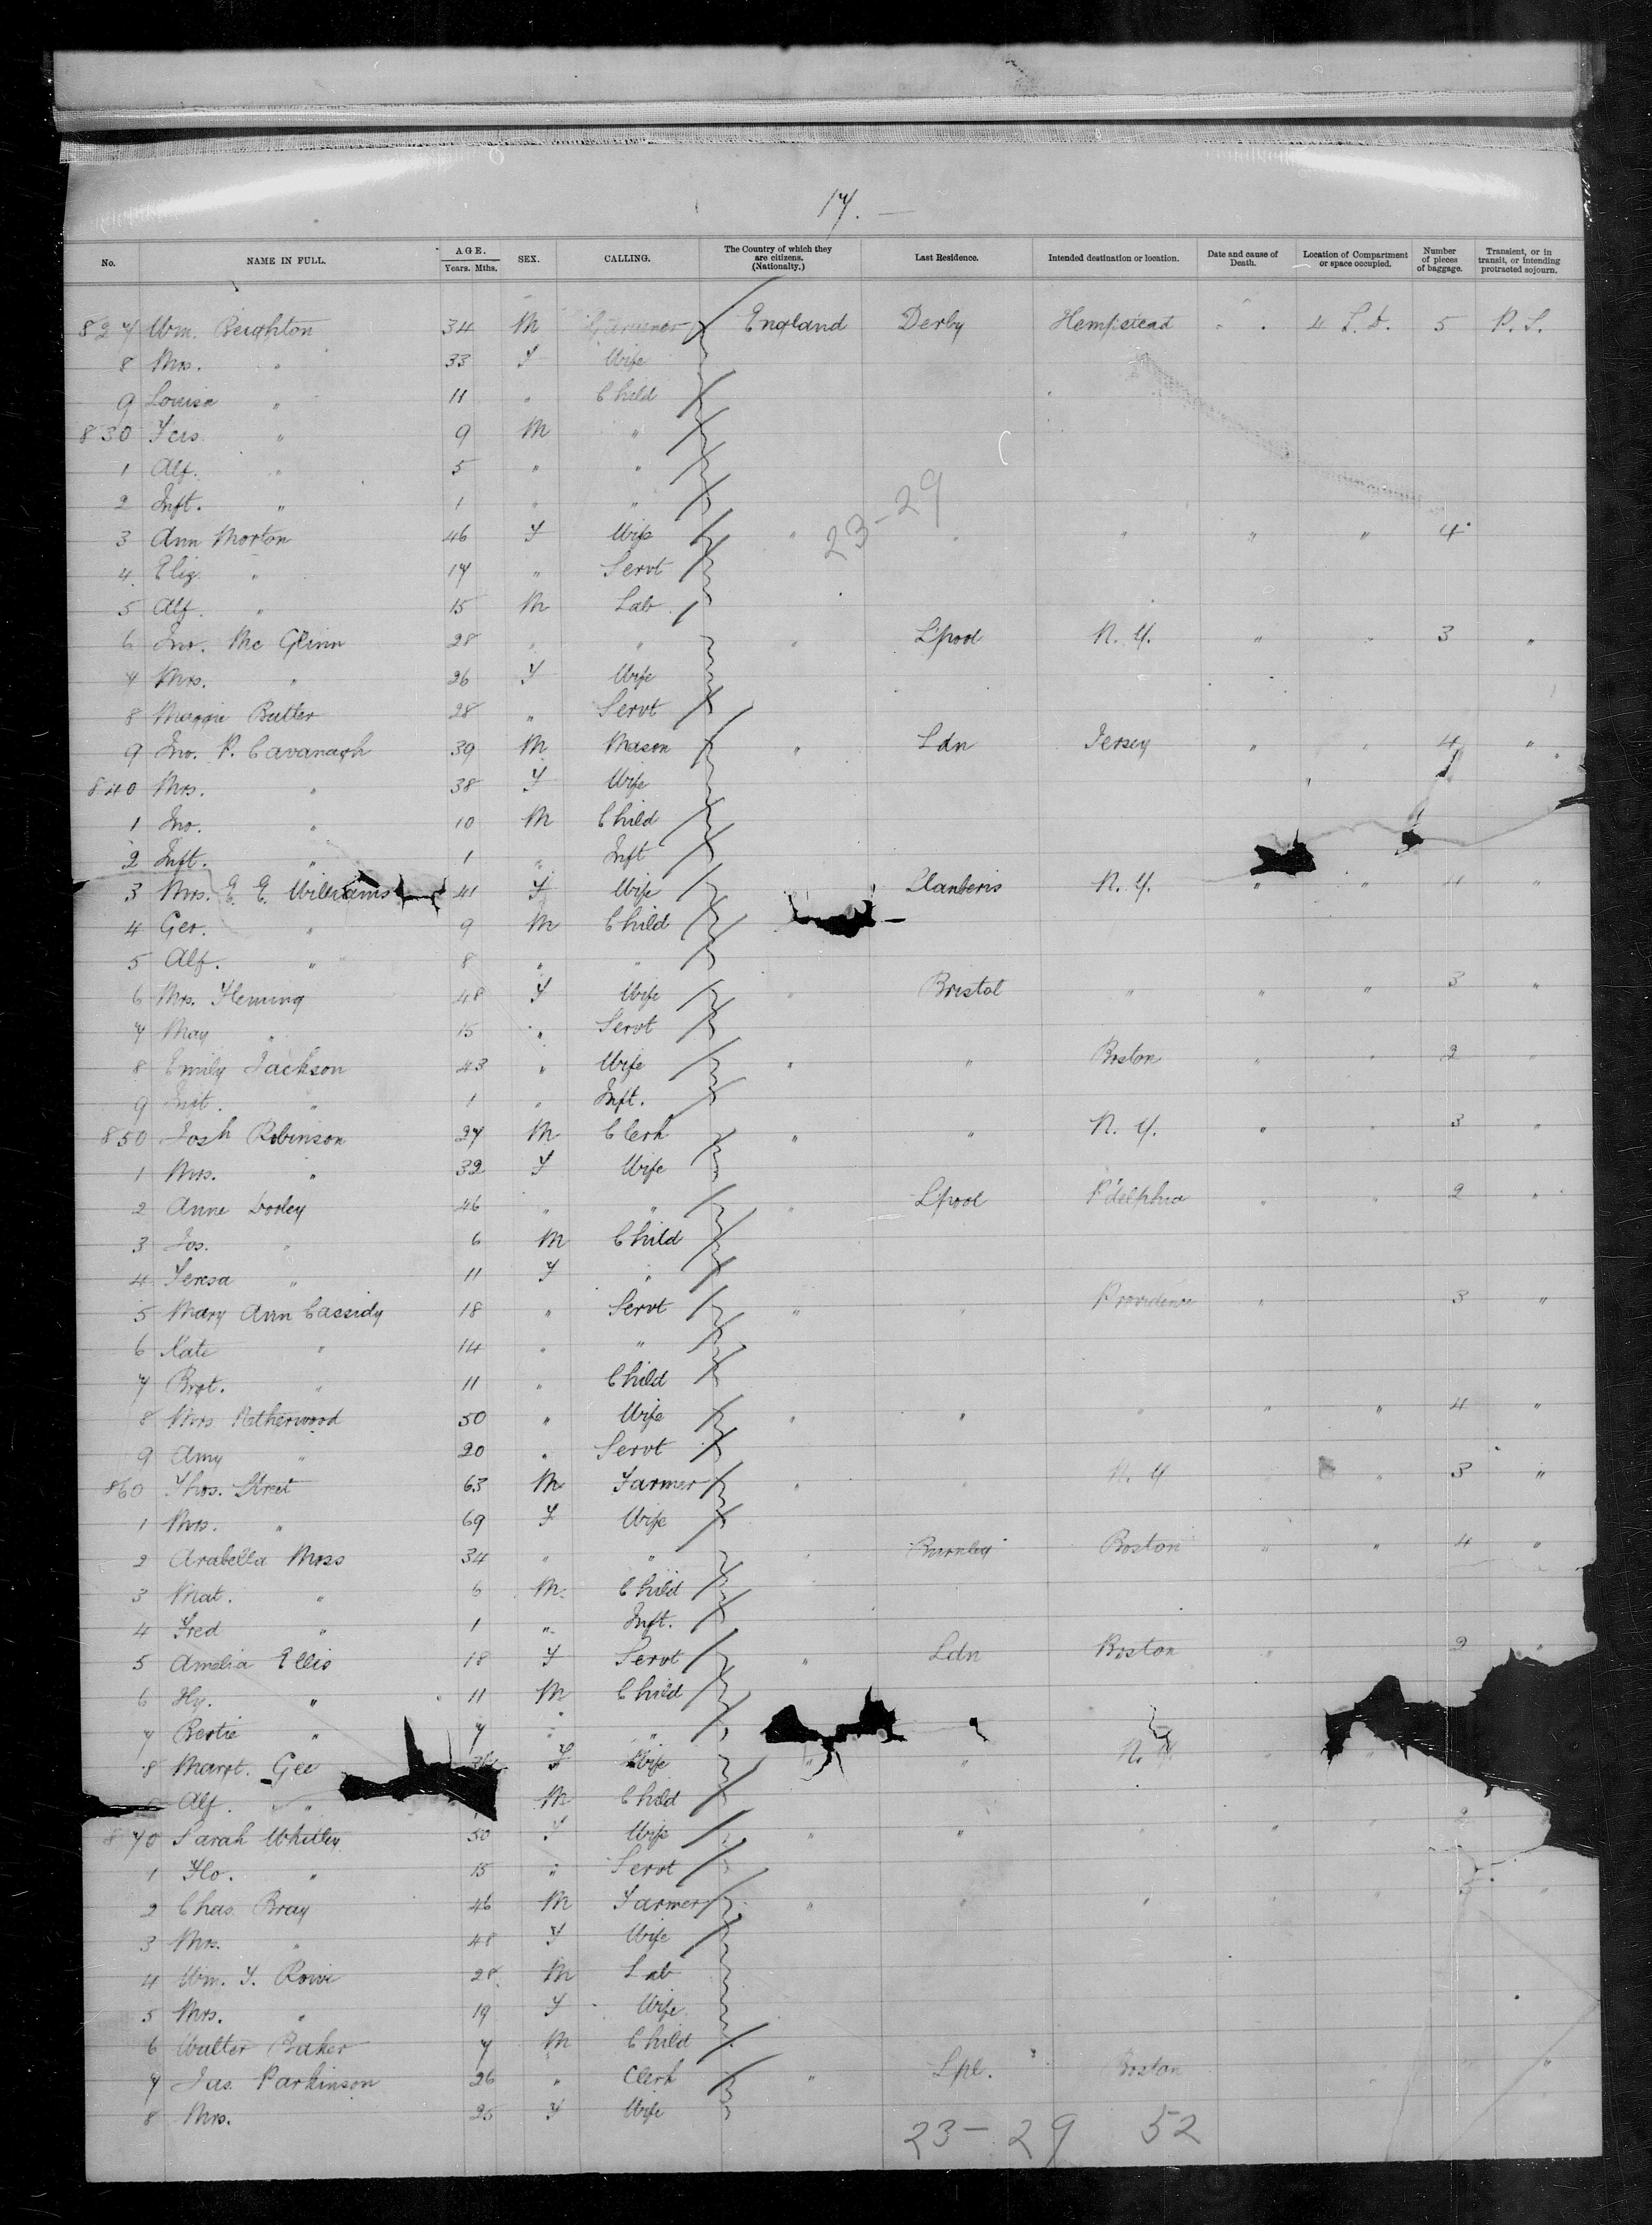 17. —
No. NAME IN FULL. AGE. Years. Mths. SEX. CALLING. The Country of which they are citizens. (Nationality.) Last Residence. Intended destination or location. Date and cause of Death. Location of Compartment or space occupied. Number of pieces of baggage. Transient, or in transit, or intending protracted sojourn.
827 Wm. Beighton 34 M England Derby Hempstead " 4 L.D. 5 P.S.
8 Mrs. " 33 F Wife
9 Louisa " 11 " Child
830 " 9 M "
1 Alf. " 5 " "
2 Inft. " 1 " "
23-29
3 Ann Morton 46 F Wife " " " " " 4
4 Eliz " 17 " Servt
5 Alf. " 15 M Lab
6 Jno. Mc Glinn 28 " " " L'pool N.Y. " " 3 "
7 Mrs. " 26 F Wife
8 Maggie Butler 28 " Servt
9 Jno. P. Cavanagh 39 M Mason " Ldn Jersey " " 4 "
840 Mrs. " 38 F Wife
1 Jno. " 10 M Child
2 Inft. " 1 " Inft
3 Mrs. E. E. Williams 41 F Wife Llanberis N.Y. " " 4 "
4 Geo. " 9 M Child
5 Alf. " 8 " "
6 Mrs. Fleming 48 F Wife " Bristol " " " 3 "
7 May " 15 " Servt
8 Emily Jackson 43 " Wife " " Boston " " 2 "
9 Inft. " 1 " Inft.
850 Josh Robinson 27 M Clerk " " N.Y. " " 3 "
1 Mrs. " 32 F Wife
2 Anne Dooley 46 " " " L'pool P'delphia " " 2 "
3 Jos. " 6 M Child
4 Teresa " 11 F "
5 Mary Ann Cassidy 18 " Servt " " Providence " 3 "
6 Kate " 14 " "
7 Brgt. " 11 " Child
8 Mrs Netherwood 50 " Wife " " " " " 4 "
9 Amy " 20 " Servt
860 Thos. Street 63 M Farmer " " N.Y " " 3 "
1 Mrs. " 69 F Wife
2 Arabella Moss 34 " " " Burnley Boston " " 4 "
3 Mat. " 6 M Child
4 Fred " 1 " Inft.
5 Amelia Ellis 18 F Servt " Ldn Boston " 2 "
6 Hy. " 11 M Child
7 Bertie " 7 " "
8 Margt. Gee F Wife " " N.Y. "
Alf. " M Child
870 Sarah Whitley 50 F Wife " " " " " 2
1 Flo. " 15 " Servt
2 Chas. Bray 46 M Farmer " " " " " "
3 Mrs. " 48 F Wife
4 Wm. F. Rowe 28 M Lab
5 Mrs. " 19 F Wife
6 Walter Baker 7 M Child
7 Jas. Parkinson 26 " Clerk " Lpl. Boston "
8 Mrs. 25 F Wife
23-29 52